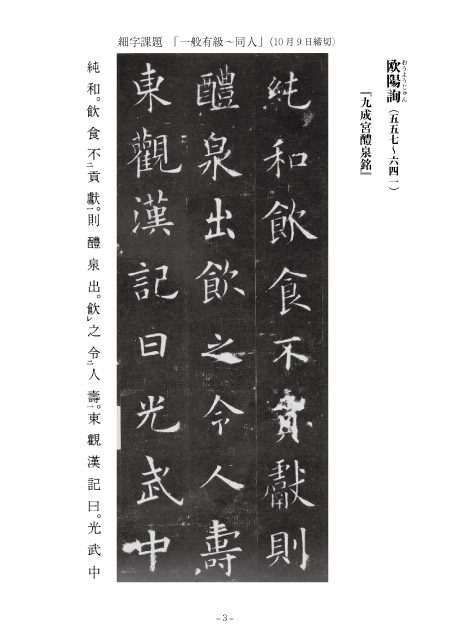 細字課題 「一般有級～同人」(10月9日締切)
おうようじゅん
欧陽詢(五五七～六四一)
『九成宮醴泉銘』
純和飲食不貢獻則
醴泉出飲之令人壽
東觀漢記曰光武中
純和。飲食不㆓貢獻㆒。則醴泉出。飲レ之令㆓人壽㆒。東觀漢記曰。光武中
－3－